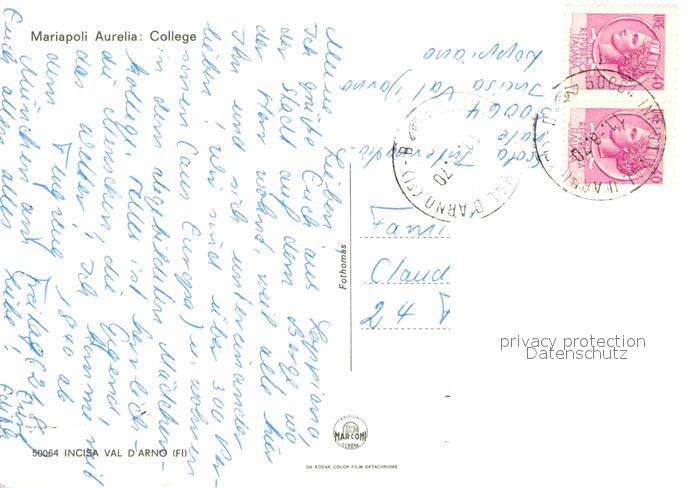 Mariapoli Aurelia: College
Meine Lieben,
Ich grüße Euch aus Loppiano,
der Stadt auf dem Berge, wo
der Herr wohnt, weil alle hier
Ihn und sich untereinander
lieben; wir sind über 300 Per-
sonen (aus Europa) u. wohnen
in dem abgebildeten Mädchen-
College. Alles ist herrlich-
die Menschen, die Gegend,
das Wetter! Ich komme mit
dem Flugzeug 18.40 ab
München an!
Euch allen alles Liebe!
Scuola Internazio-
nale
50064
Incisa Val d'Arno
Loppiano
LIRE 40
REPUBBLICA ITALIANA
LIRE 40
VAL D'ARNO (FI)
70
B
11.-8-70
Fam
Claud
24
Fothomas
privacy protection
Datenschutz
EDIZIONI
MARCONI
GENOVA
50064 INCISA VAL D'ARNO (FI)
DA KODAK COLOR FILM EKTACHROME